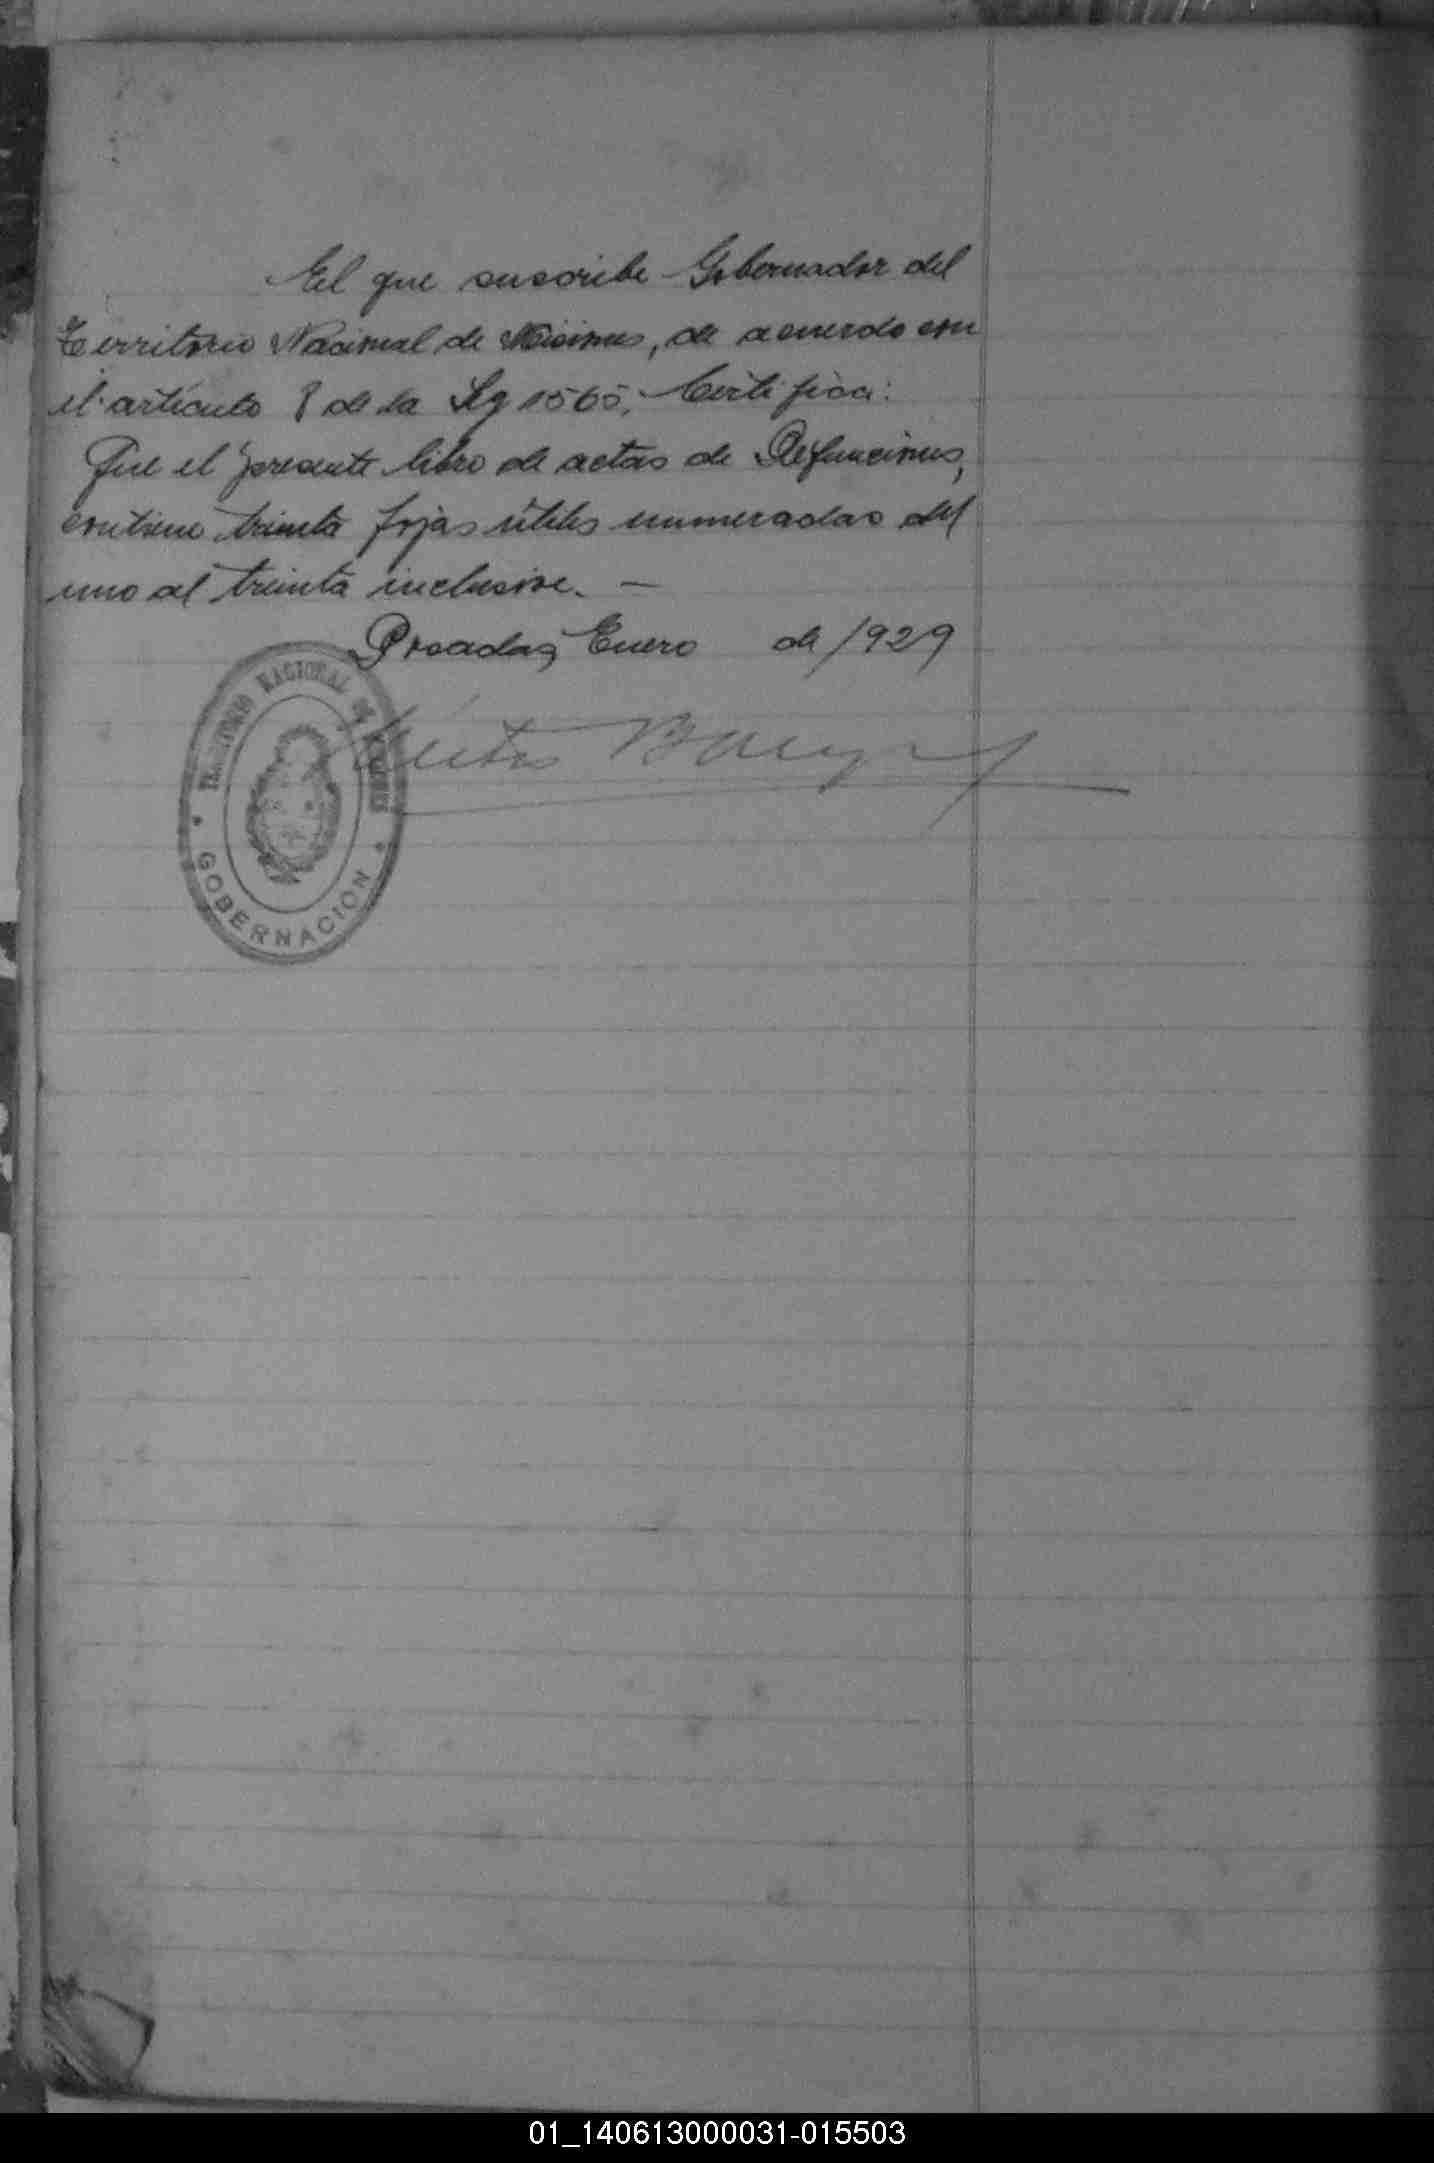 El que suscribe Gobernador del
Territorio Nacional de Misiones, de acuerdo con
el artículo 8 de la Ley 1565, Certifica:
Que el presente libro de actas de Defunciones,
contiene treinta fojas útiles numeradas del
uno al treinta inclusive. —
Posadas, Enero de 1929
TERRITORIO NACIONAL DE MISIONES
GOBERNACION
01_140613000031-015503